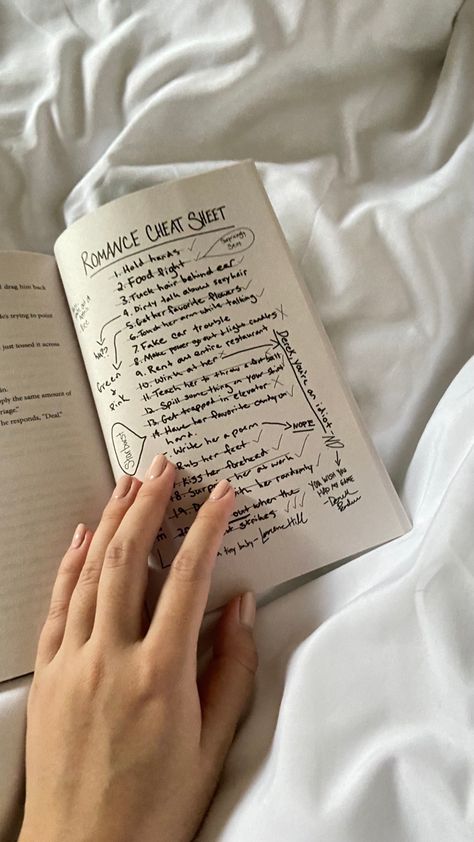 drag him back
he's trying to point
just tossed it across
in.
pply the same amount of
riage."
he responds, "Deal."
ROMANCE CHEAT SHEET
1. Hold hands
2. Food fight
3. Tuck hair behind ear
4. Dirty talk about sexy hair
5. Get her favorite flowers
6. Touch her arm while talking
7. Fake car trouble
8. Make power go out + light candles
9. Rent out entire restaurant
10. Wink at her
11. Teach her to throw a dart
12. Spill something on your shirt
13. Get trapped in elevator
14. Have her favorite candy on
hand.
Write her a poem
NOPE
Rub her feet
Kiss her forehead
18. Surprise her at work
with her randomly
19. out when the
20. strikes
tiny baby - Lorraine Hill
Seriously
Green
Pink
Derek, you're an idiot
NO
YOU WISH YOU
HAD MY GAME
- Derek